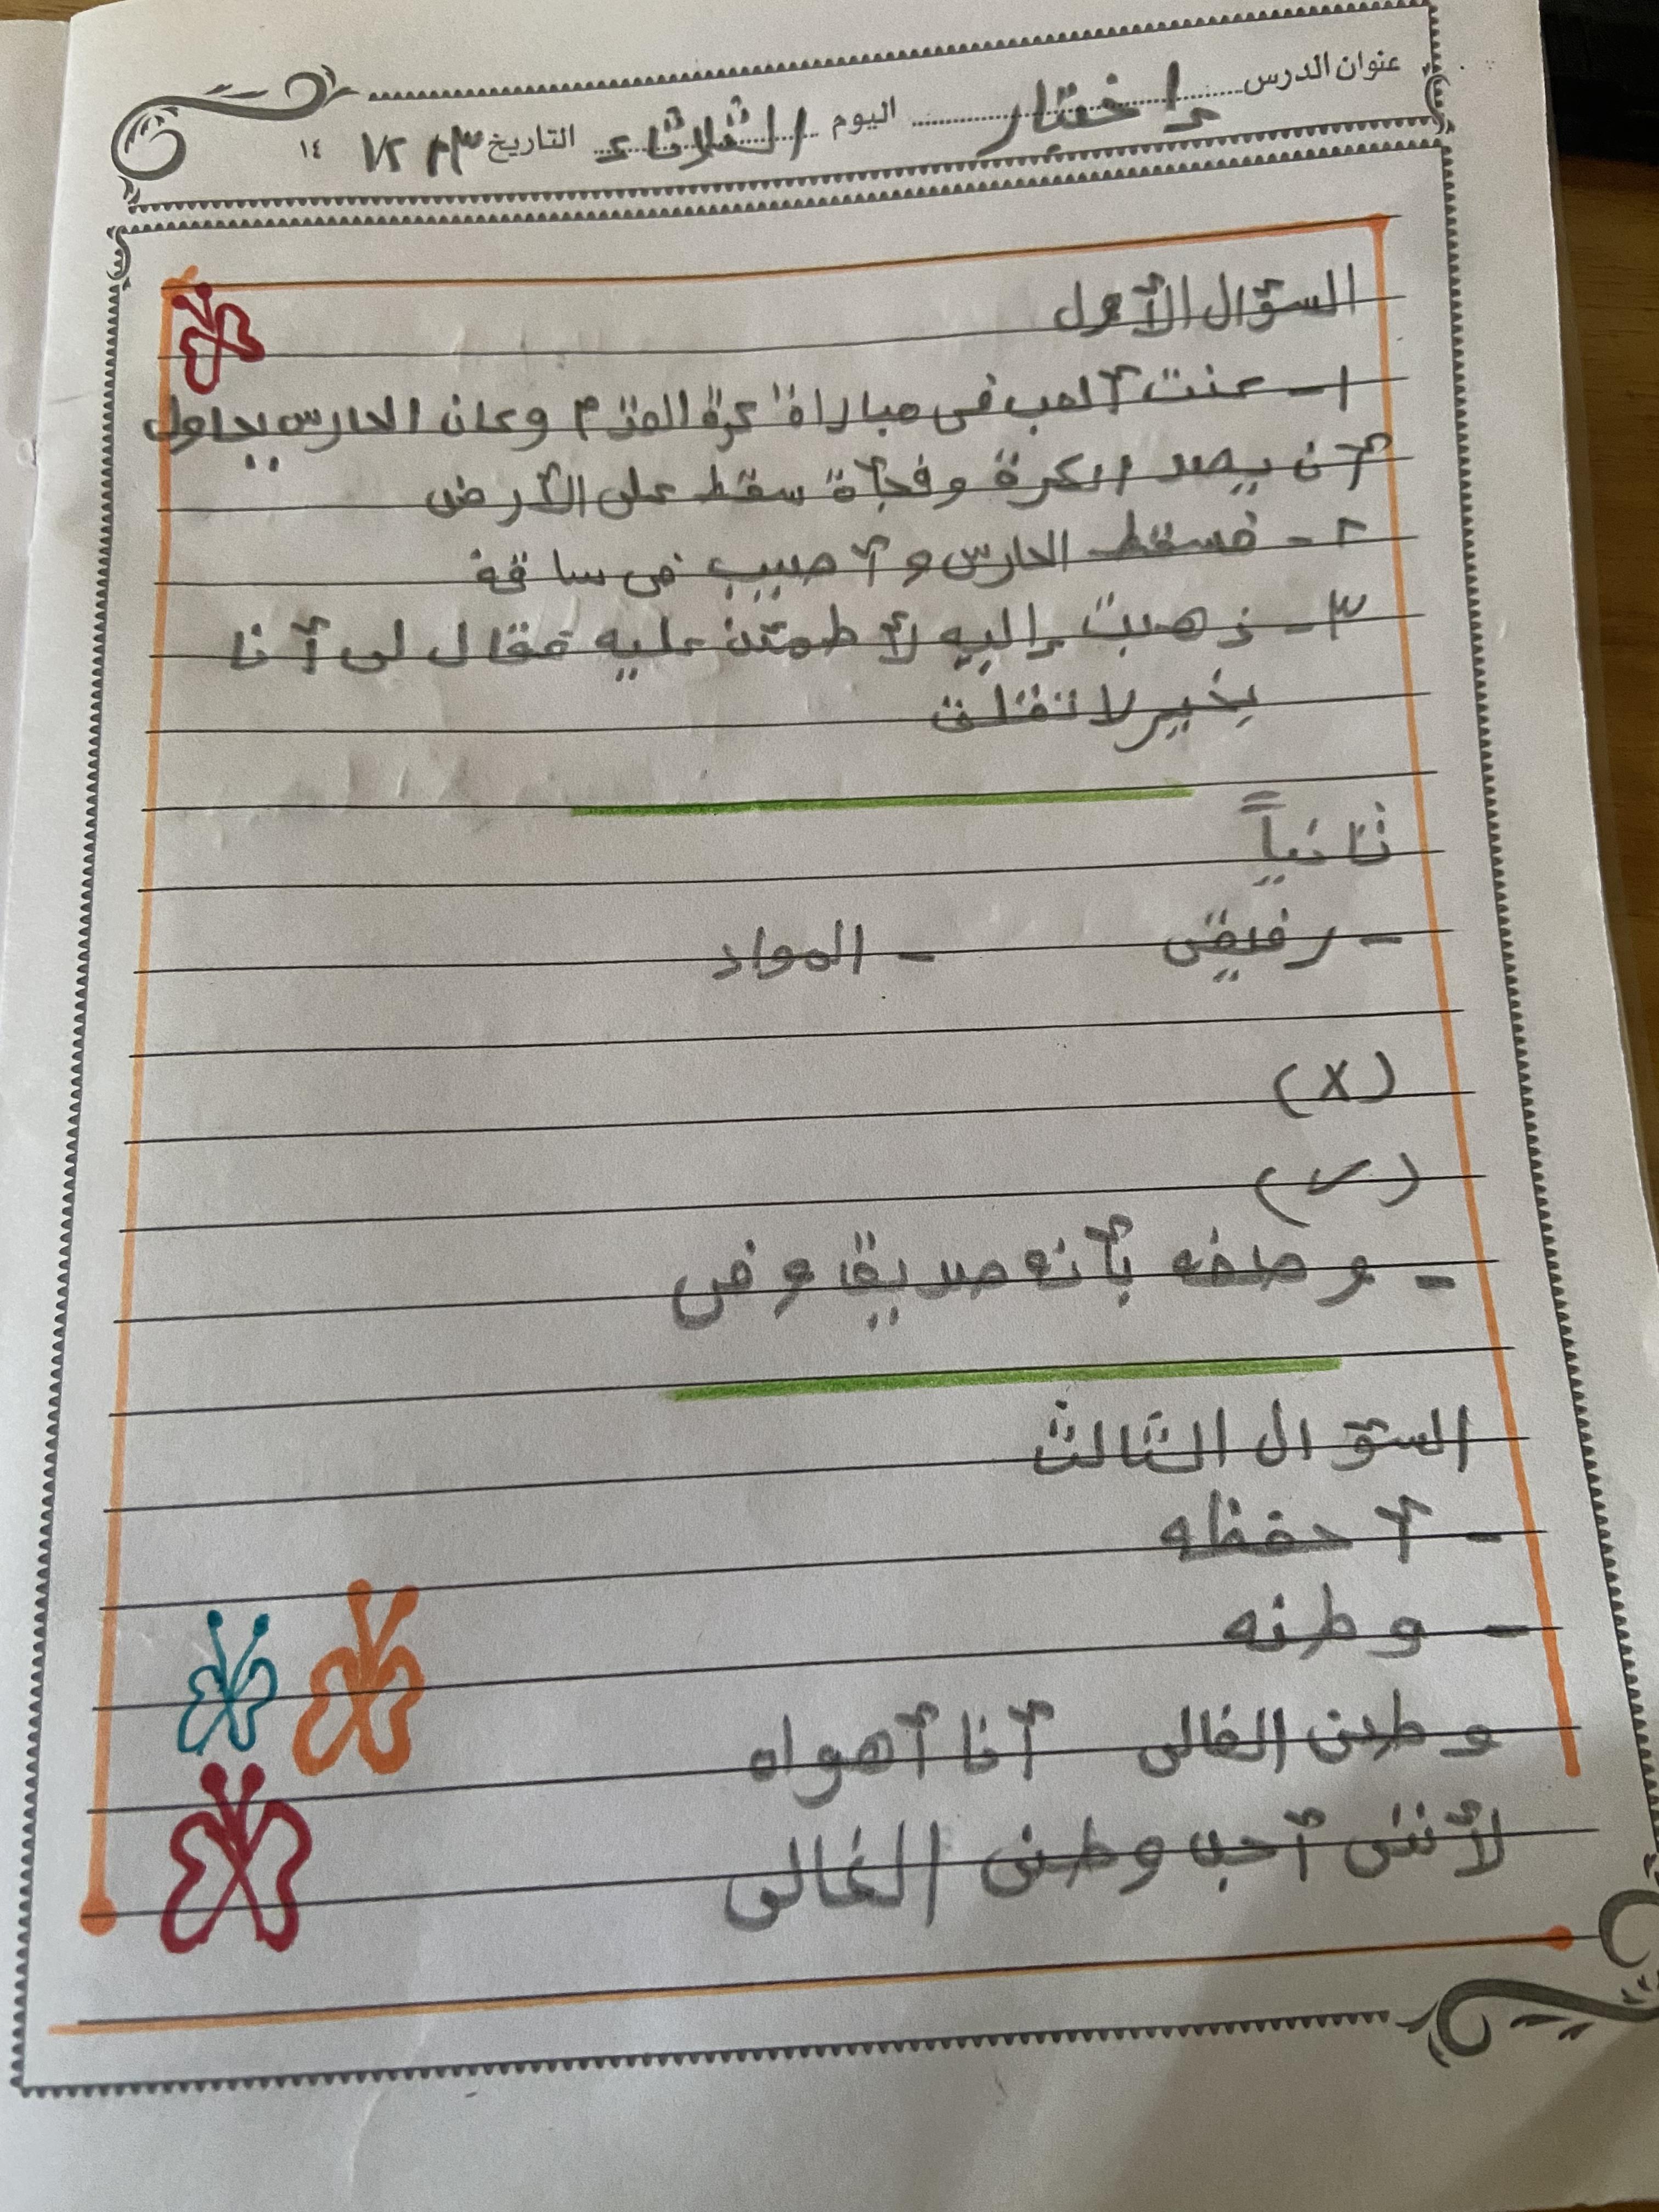 عنوان الدرس إختبار اليوم الثلاثاء التاريخ ١٤
السؤال الأول
١- كنت ألعب فى مباراة كرة القدم وكان الحارس يحاول
أن يصد الكرة وفجأة سقط على الأرض
٢- فسقط الحارس وأصيب فى ساقه
٣- ذهبت إليه لأطمئن عليه فقال لى أنا
بخير لا تقلق
ثانياً
- رفيقى - المواد
(X)
(✓)
- وصفه بأنه صديق وفى
السؤال الثالث
- أحفظه
- وطنه
وطنى الغالى أنا أهواه
لأننى أحب وطنى الغالى